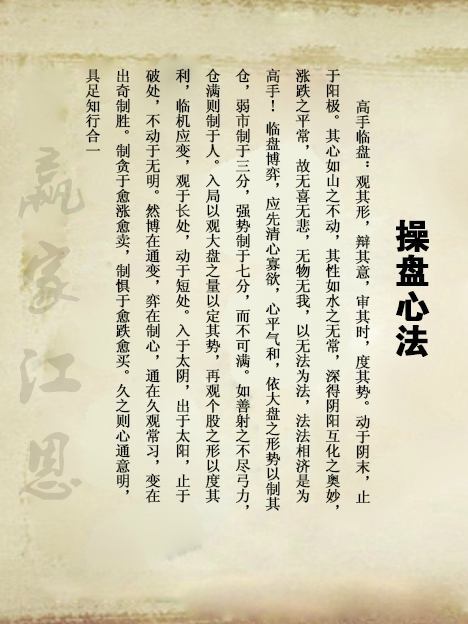 操盘心法
高手临盘：观其形，辩其意，审其时，度其势。动于阴末，止
于阳极。其心如山之不动，其性如水之无常，深得阴阳互化之奥妙，
涨跌之平常，故无喜无悲，无物无我，以无法为法，法法相济是为
高手！临盘博弈，应先清心寡欲，心平气和，依大盘之形势以制其
仓，弱市制于三分，强势制于七分，而不可满。如善射之不尽弓力，
仓满则制于人。入局以观大盘之量以定其势，再观个股之形以度其
利，临机应变，观于长处，动于短处。入于太阴，出于太阳，止于
破处，不动于无明。然博在通变，弈在制心，通在久观常习，变在
出奇制胜。制贪于愈涨愈卖，制惧于愈跌愈买。久之则心通意明，
具足知行合一
赢家江恩